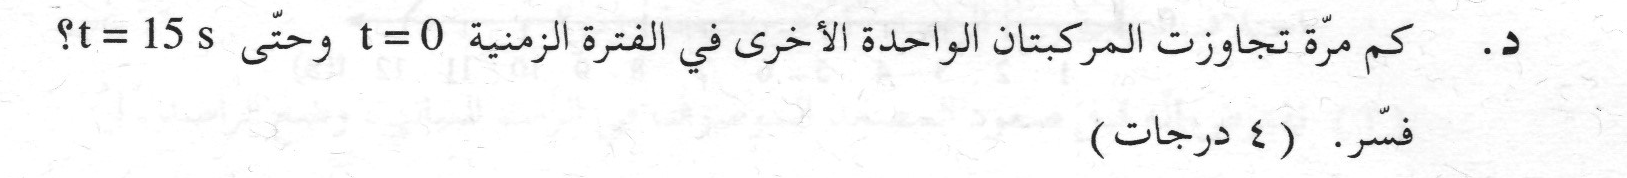 د. كم مرّة تجاوزت المركبتان الواحدة الأخرى في الفترة الزمنية t = 0 وحتّى t = 15 s؟
فسّر. (٤ درجات)